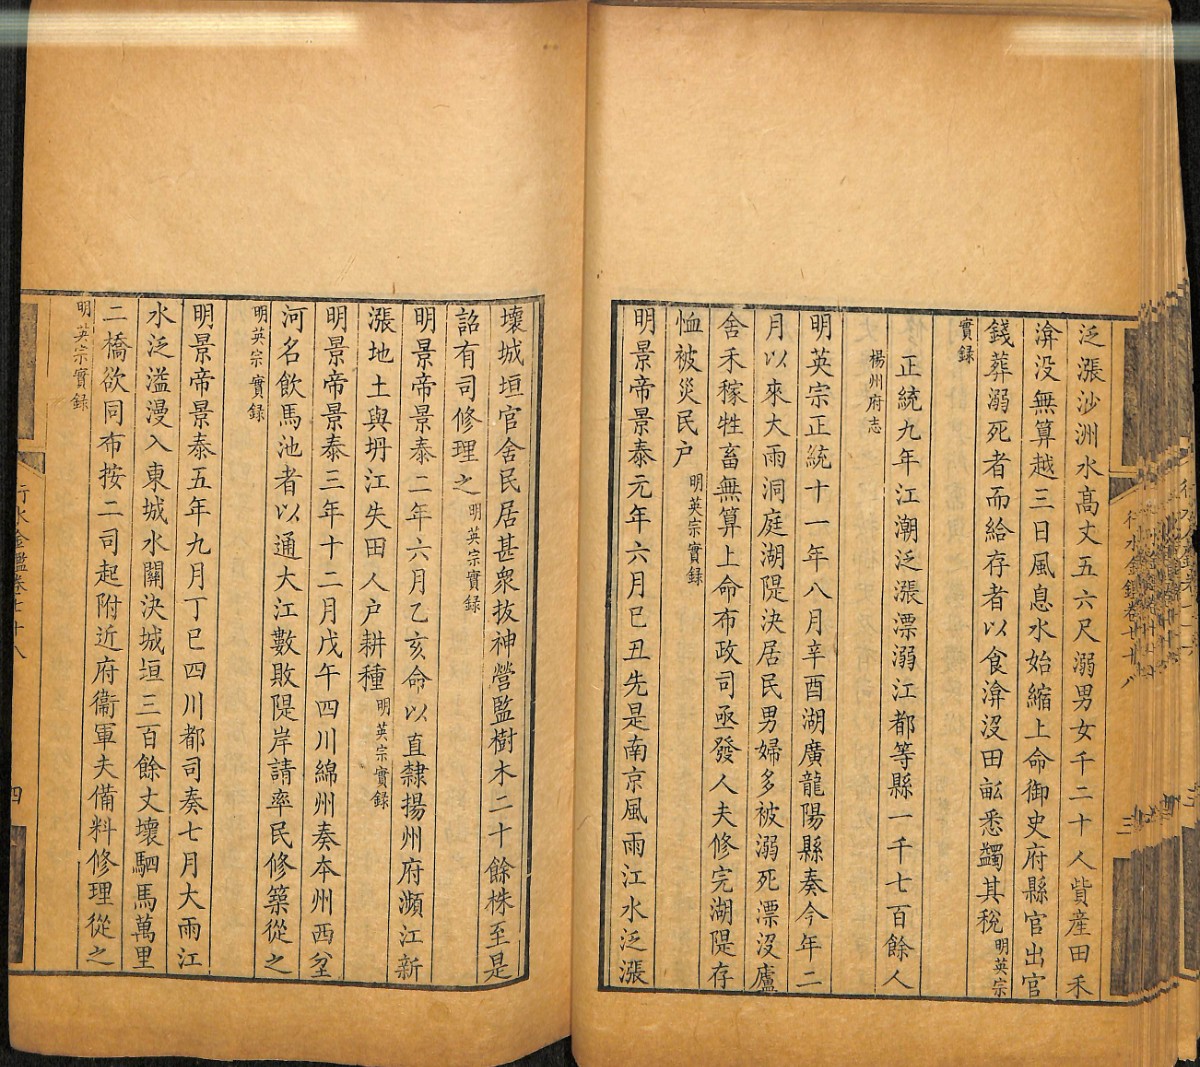 泛漲沙洲水高丈五六尺溺男女千二十人貲産田禾
渰没無算越三日風息水始縮上命御史府縣官出官
錢葬溺死者而給存者以食渰没田畝悉蠲其税明英宗
實録
正統九年江潮泛漲漂溺江都等縣一千七百餘人
楊州府志
明英宗正統十一年八月辛酉湖廣龍陽縣奏今年二
月以來大雨洞庭湖隄決居民男婦多被溺死漂没廬
舍禾稼牲畜無算上命布政司亟發人夫修完湖隄存
恤被災民户明英宗實録
明景帝景泰元年六月巳丑先是南京風雨江水泛漲
壞城垣官舍民居甚衆抜神營監樹木二十餘株至是
詔有司修理之明英宗實録
明景帝景泰二年六月乙亥命以直隸揚州府瀕江新
漲地土與坍江失田人户耕種明英宗實録
明景帝景泰三年十二月戊午四川綿州奏本州西坌
河名飲馬池者以通大江數敗隄岸請率民修築從之
明英宗實録
明景帝景泰五年九月丁巳四川都司奏七月大雨江
水泛溢漫入東城水關決城垣三百餘丈壞駟馬萬里
二橋欲同布按二司起附近府衞軍夫備料修理從之
明英宗實録
行水金鑑卷七十八
四